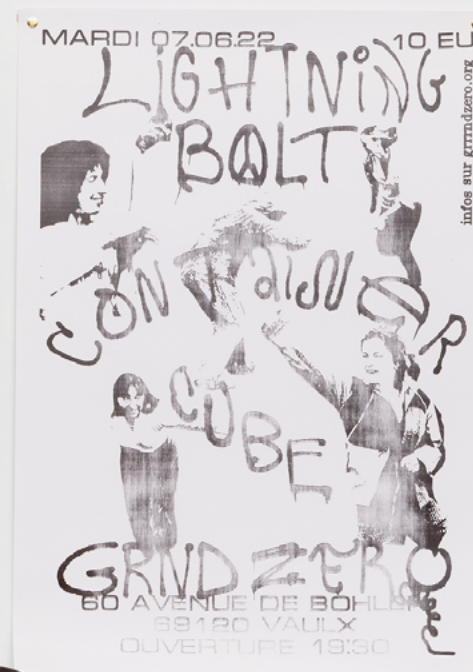 MARDI 07.06.22 10 EU
infos sur grrrndzero.org
LiGHTNiNG
BOLT
CONTAINER
CUBE
GRND ZERO
60 AVENUE DE BOHLEN
69120 VAULX
OUVERTURE 19:30